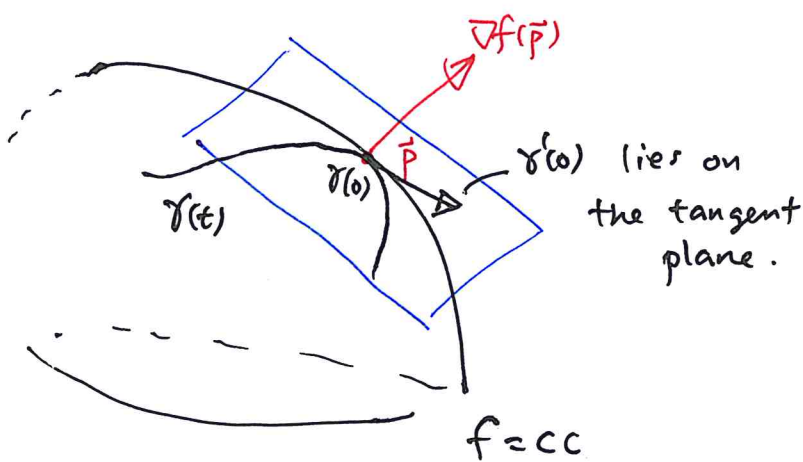 ∇f(p⃗)
p⃗
γ'(0) lies on
the tangent
plane.
γ(0)
γ(t)
f = cc